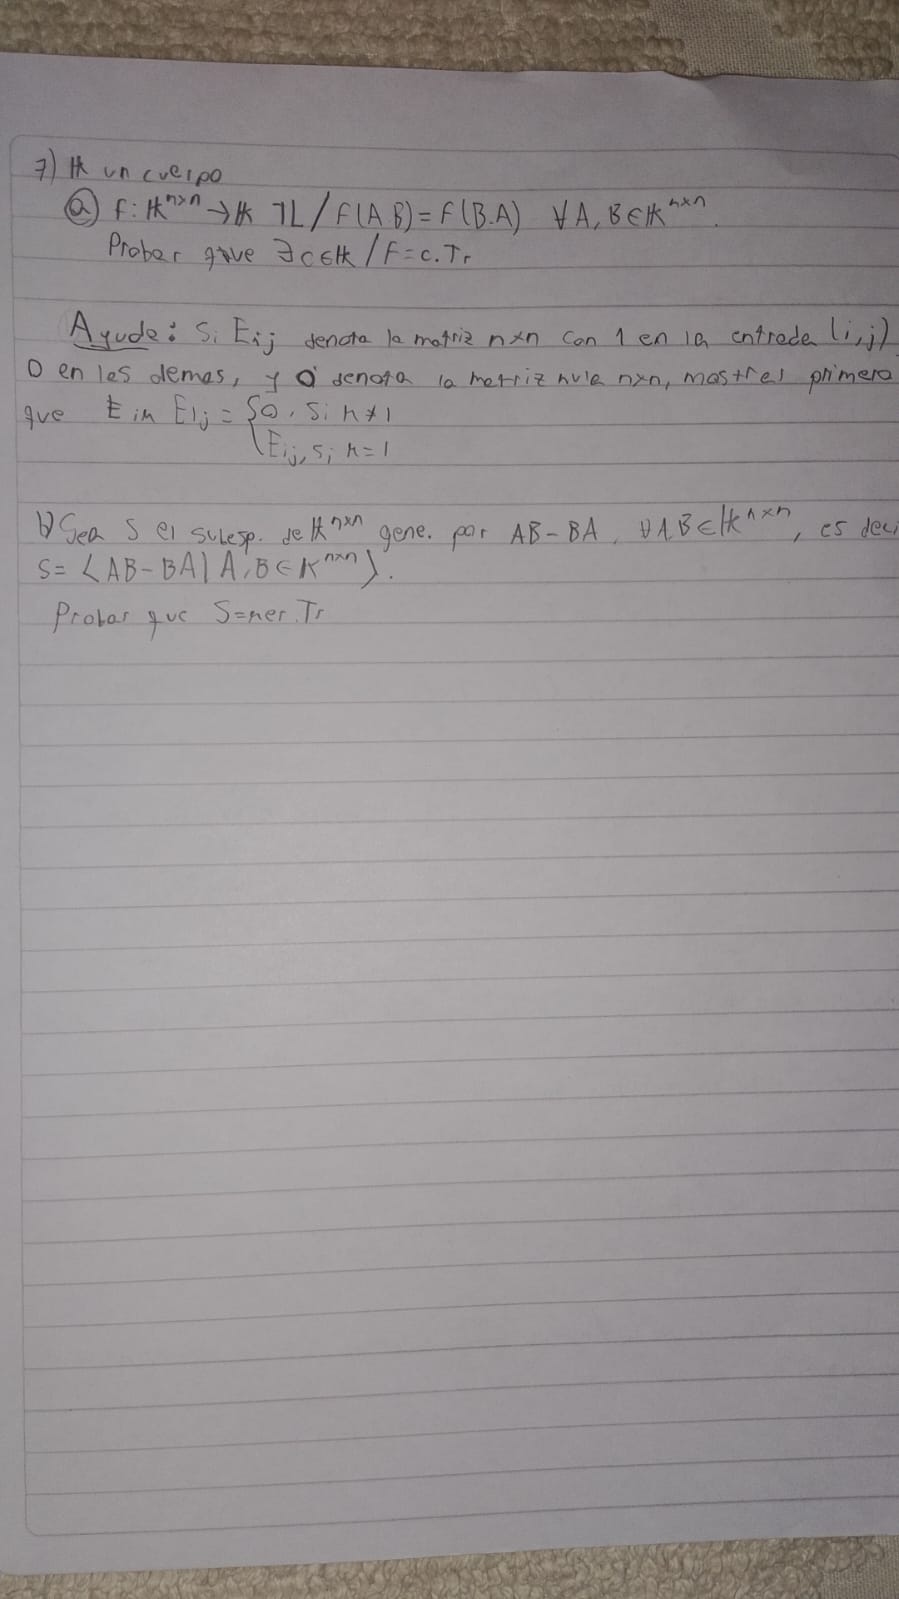 7) 𝕂 un cuerpo
ⓐ f: 𝕂ⁿˣⁿ → 𝕂 TL / f(A.B) = f(B.A) ∀ A, B ∈ 𝕂ⁿˣⁿ.
Probar que ∃ c ∈ 𝕂 / f = c. Tr
Ayuda: Si Eij denota la matriz n×n con 1 en la entrada (i,j)
0 en las demas, y 0 denota la matriz nula n×n, mostrar primero
que Eik Elj = {0, si k ≠ l
{Eij, si k = l
b) Sea S el subesp. de 𝕂ⁿˣⁿ gene. por AB - BA, ∀ A, B ∈ 𝕂ⁿˣⁿ, es deci
S = ⟨AB - BA | A, B ∈ 𝕂ⁿˣⁿ⟩.
Probar que S = ker. Tr